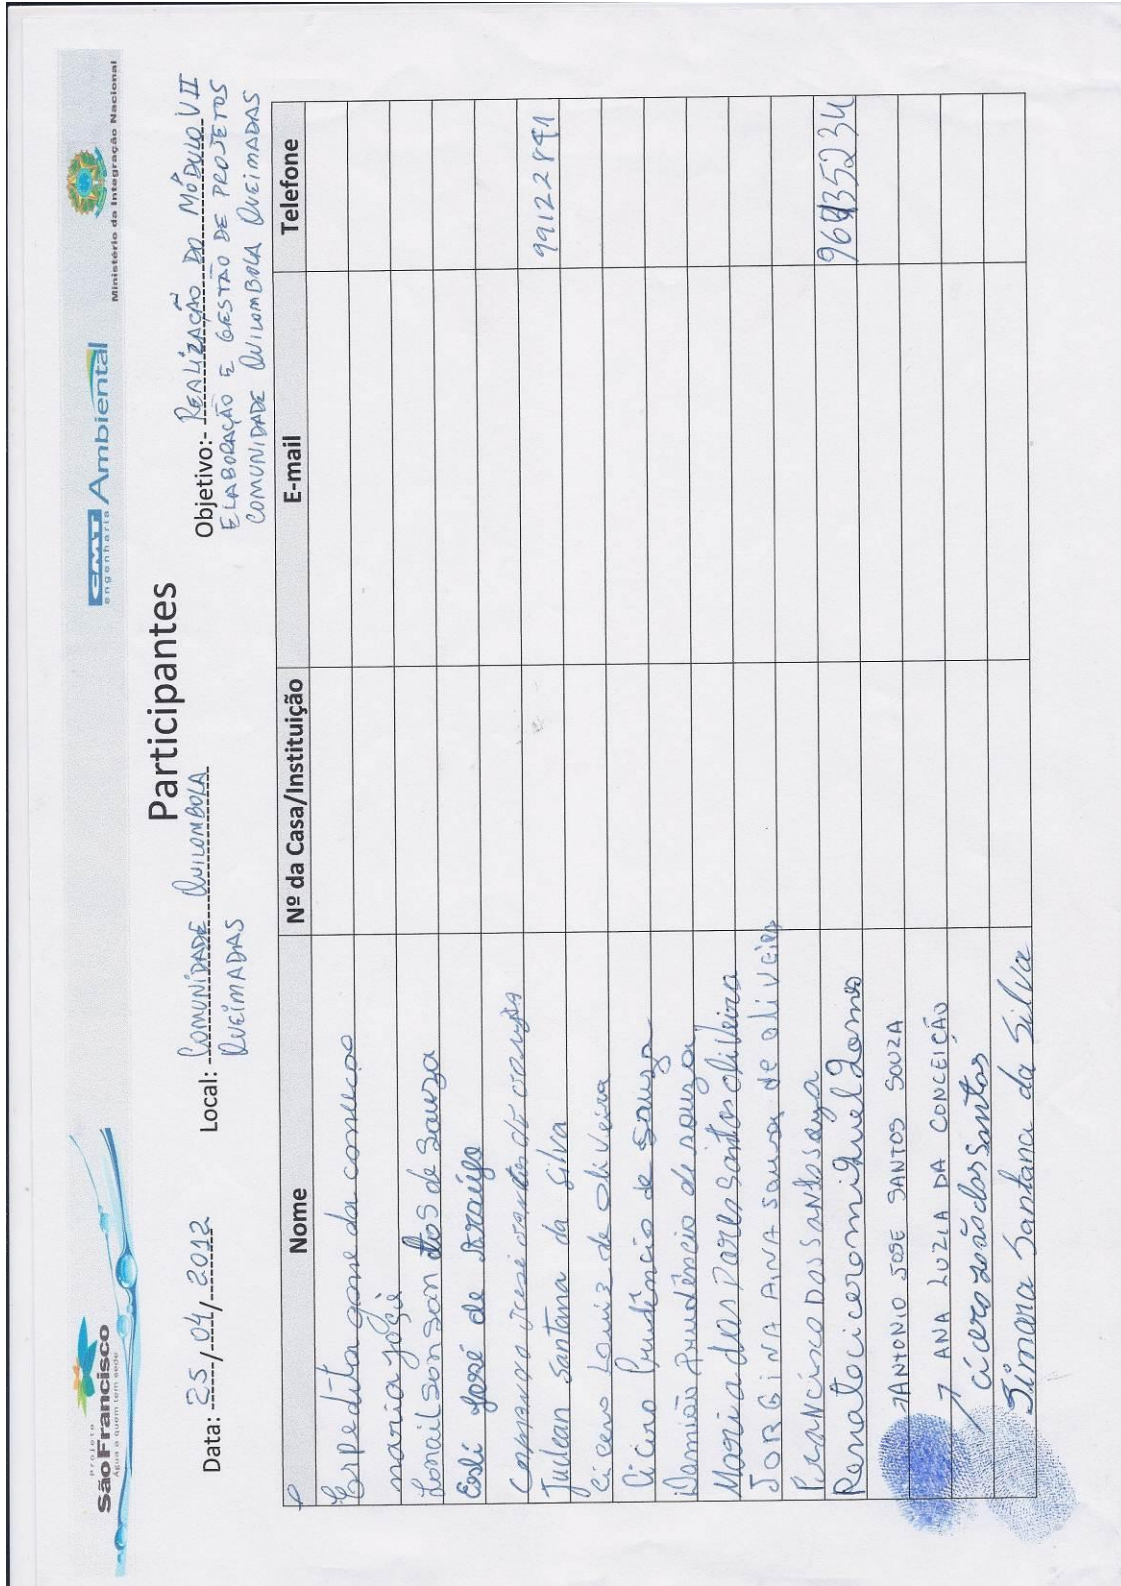 Projeto
São Francisco
Água a quem tem sede
CMT Ambiental
engenharia
Ministério da Integração Nacional
Participantes
Data: 25/04/2012 Local: Comunidade Quilombola Objetivo:- Realização do Módulo VII
Queimadas Elaboração e Gestão de Projetos
Comunidade Quilombola Queimadas
Nome Nº da Casa/Instituição E-mail Telefone
Maria
Lonailson san dos de Souza
José de Araújo
Juclean Santana da Silva 99122891
Cicero Louiz de Oliveira
Cicero Prudêncio de Souza
Damião Prudêncio de souza
Maria das Dores Santos Oliveira
JORGINA ANA Souza de oliveira
Francisco DOS SANTOS
Renato cicero miguel 96435234
ANTONIO JOSE SANTOS SOUZA
ANA LUZIA DA CONCEIÇÃO
cicero dos Santos
Simara Santana da Silva